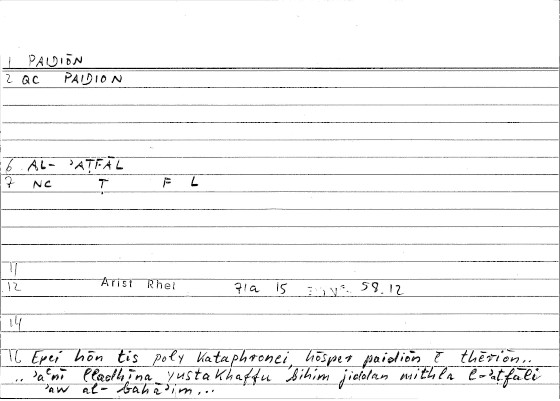 1 PAIDIŌN
2 QC PAIDION
6 AL- ʾAṬFĀL
7 NC Ṭ F L
11
12 Arist Rhet 71a 15 58.12
14
16 Epei hōn tis poly kataphronei, hōsper paidiōn ē thēriōn..
.. ʾaʿnī lladhīna yustakhaffu bihim jiddan mithla l-ʾaṭfāli
ʾaw al- bahāʾim...